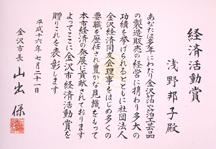 経済活動賞
浅野邦子殿
あなたは多年にわたり金沢箔工芸品
の製造販売の経営に携わり多大の
功績を挙げられるとともに社団法人
金沢経済同友会理事をはじめ多くの
要職を歴任され豊かな見識をもって
本市経済の発展に貢献されました
よってここに金沢市経済活動賞を
贈りこれを表彰します
平成十六年七月二十一日
金沢市長 山出保